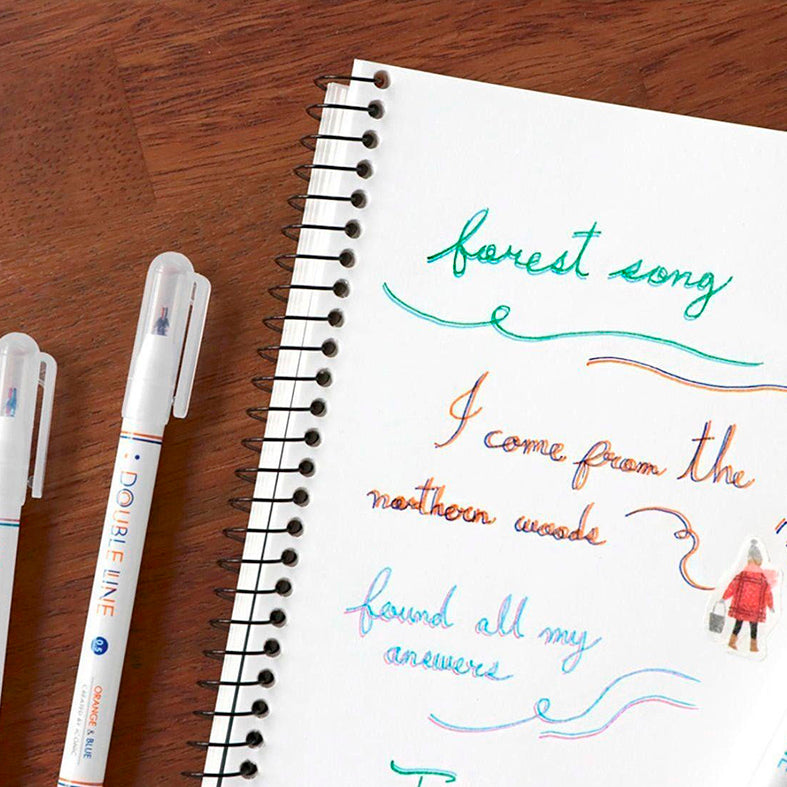 forest song
I come from the
northern woods
found all my
answers
DOUBLE LINE
0.5
ORANGE & BLUE
CREATED BY ICONIC